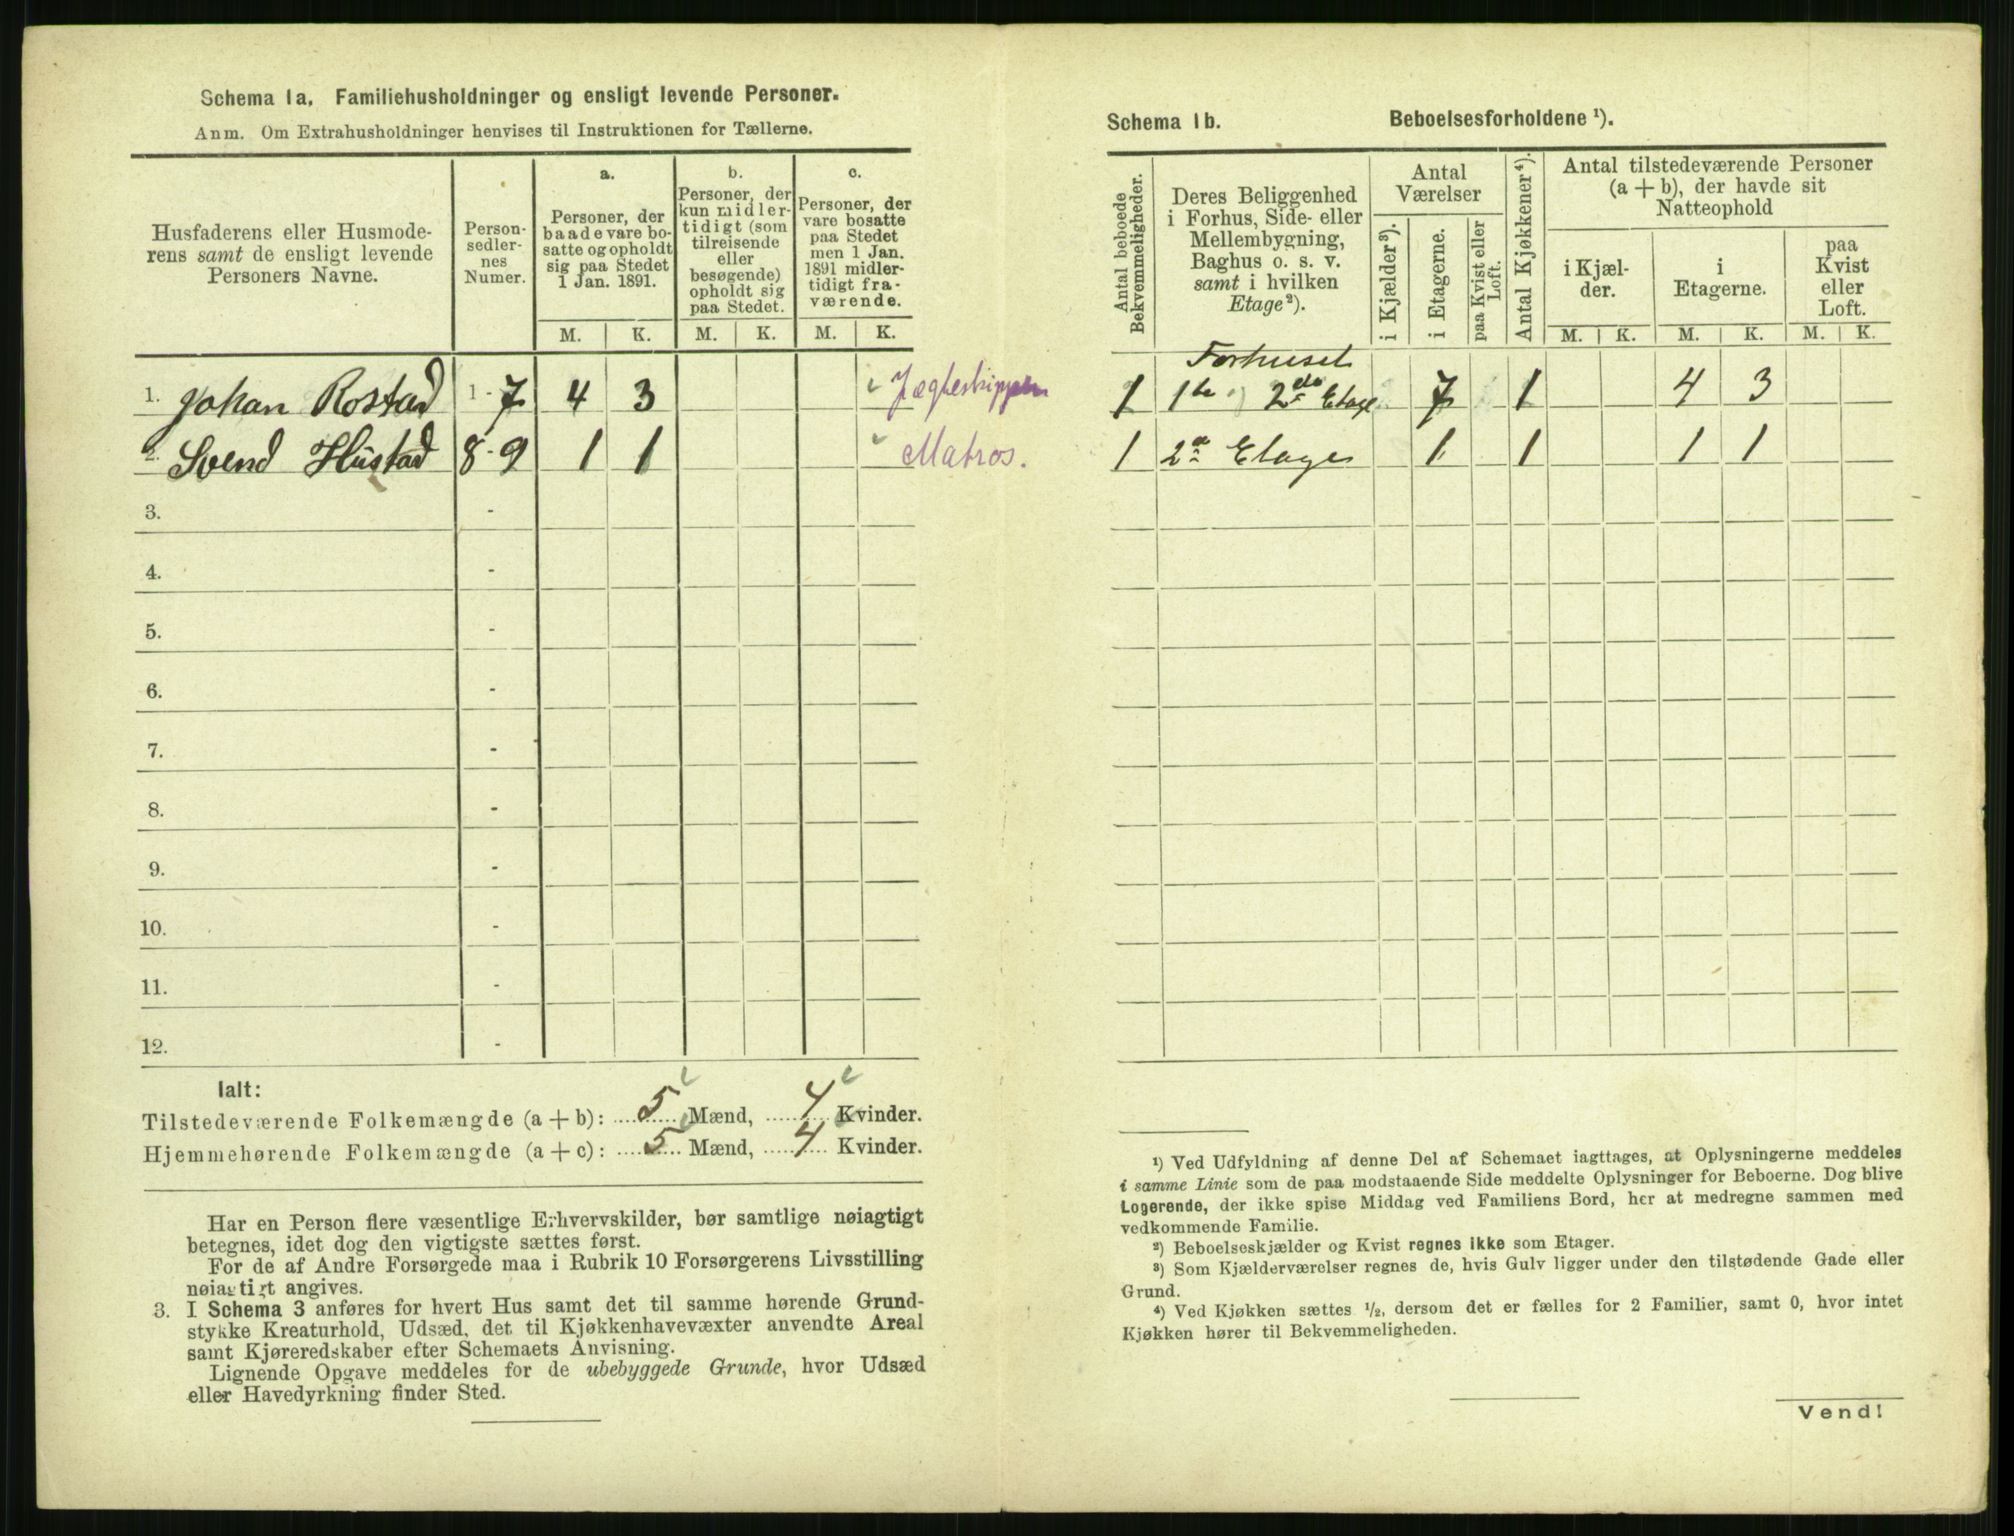 Schema 1a. Familiehusholdninger og ensligt levende Personer.
Anm. Om Extrahusholdninger henvises til Instruktionen for Tællerne.
Husfaderens eller Husmoderens samt de ensligt levende Personers Navne.
Person-sedler-nes Numer.
a. Personer, der baade vare bosatte og opholdt sig paa Stedet 1 Jan. 1891.
b. Personer, der kun midlertidigt (som tilreisende eller besøgende) opholdt sig paa Stedet.
c. Personer, der vare bosatte paa Stedet men 1 Jan. 1891 midlertidigt fraværende.
M. K. M. K. M. K.
1. Johan Rostad 1-7 4 3 Jægteskipper
2. Svend Hustad 8-9 1 1 Matros.
3. -
4. -
5. -
6. -
7. -
8. -
9. -
10. -
11. -
12. -
Ialt:
Tilstedeværende Folkemængde (a + b): 5 Mænd, 4 Kvinder.
Hjemmehørende Folkemængde (a + c): 5 Mænd, 4 Kvinder.
Har en Person flere væsentlige Erhvervskilder, bør samtlige nøiagtigt
betegnes, idet dog den vigtigste sættes først.
For de af Andre Forsørgede maa i Rubrik 10 Forsørgerens Livsstilling
nøiagtigt angives.
3. I Schema 3 anføres for hvert Hus samt det til samme hørende Grund-
stykke Kreaturhold, Udsæd, det til Kjøkkenhavevæxter anvendte Areal
samt Kjøreredskaber efter Schemaets Anvisning.
Lignende Opgave meddeles for de ubebyggede Grunde, hvor Udsæd
eller Havedyrkning finder Sted.
Schema 1b. Beboelsesforholdene ¹).
Antal beboede Bekvemmeligheder.
Deres Beliggenhed i Forhus, Side- eller Mellembygning, Baghus o. s. v. samt i hvilken Etage²).
Antal Værelser
i Kjælder³).
i Etagerne.
paa Kvist eller Loft.
Antal Kjøkkener⁴).
Antal tilstedeværende Personer (a + b), der havde sit Natteophold
i Kjælder.
i Etagerne.
paa Kvist eller Loft.
M. K. M. K. M. K.
Forhuset
1 1te og 2den Etage 7 1 4 3
1 2en Etage 1 1 1 1
¹) Ved Udfyldning af denne Del af Schemaet iagttages, at Oplysningerne meddeles
i samme Linie som de paa modstaaende Side meddelte Oplysninger for Beboerne. Dog blive
Logerende, der ikke spise Middag ved Familiens Bord, her at medregne sammen med
vedkommende Familie.
²) Beboelseskjælder og Kvist regnes ikke som Etager.
³) Som Kjælderværelser regnes de, hvis Gulv ligger under den tilstødende Gade eller
Grund.
⁴) Ved Kjøkken sættes ½, dersom det er fælles for 2 Familier, samt 0, hvor intet
Kjøkken hører til Bekvemmeligheden.
Vend!